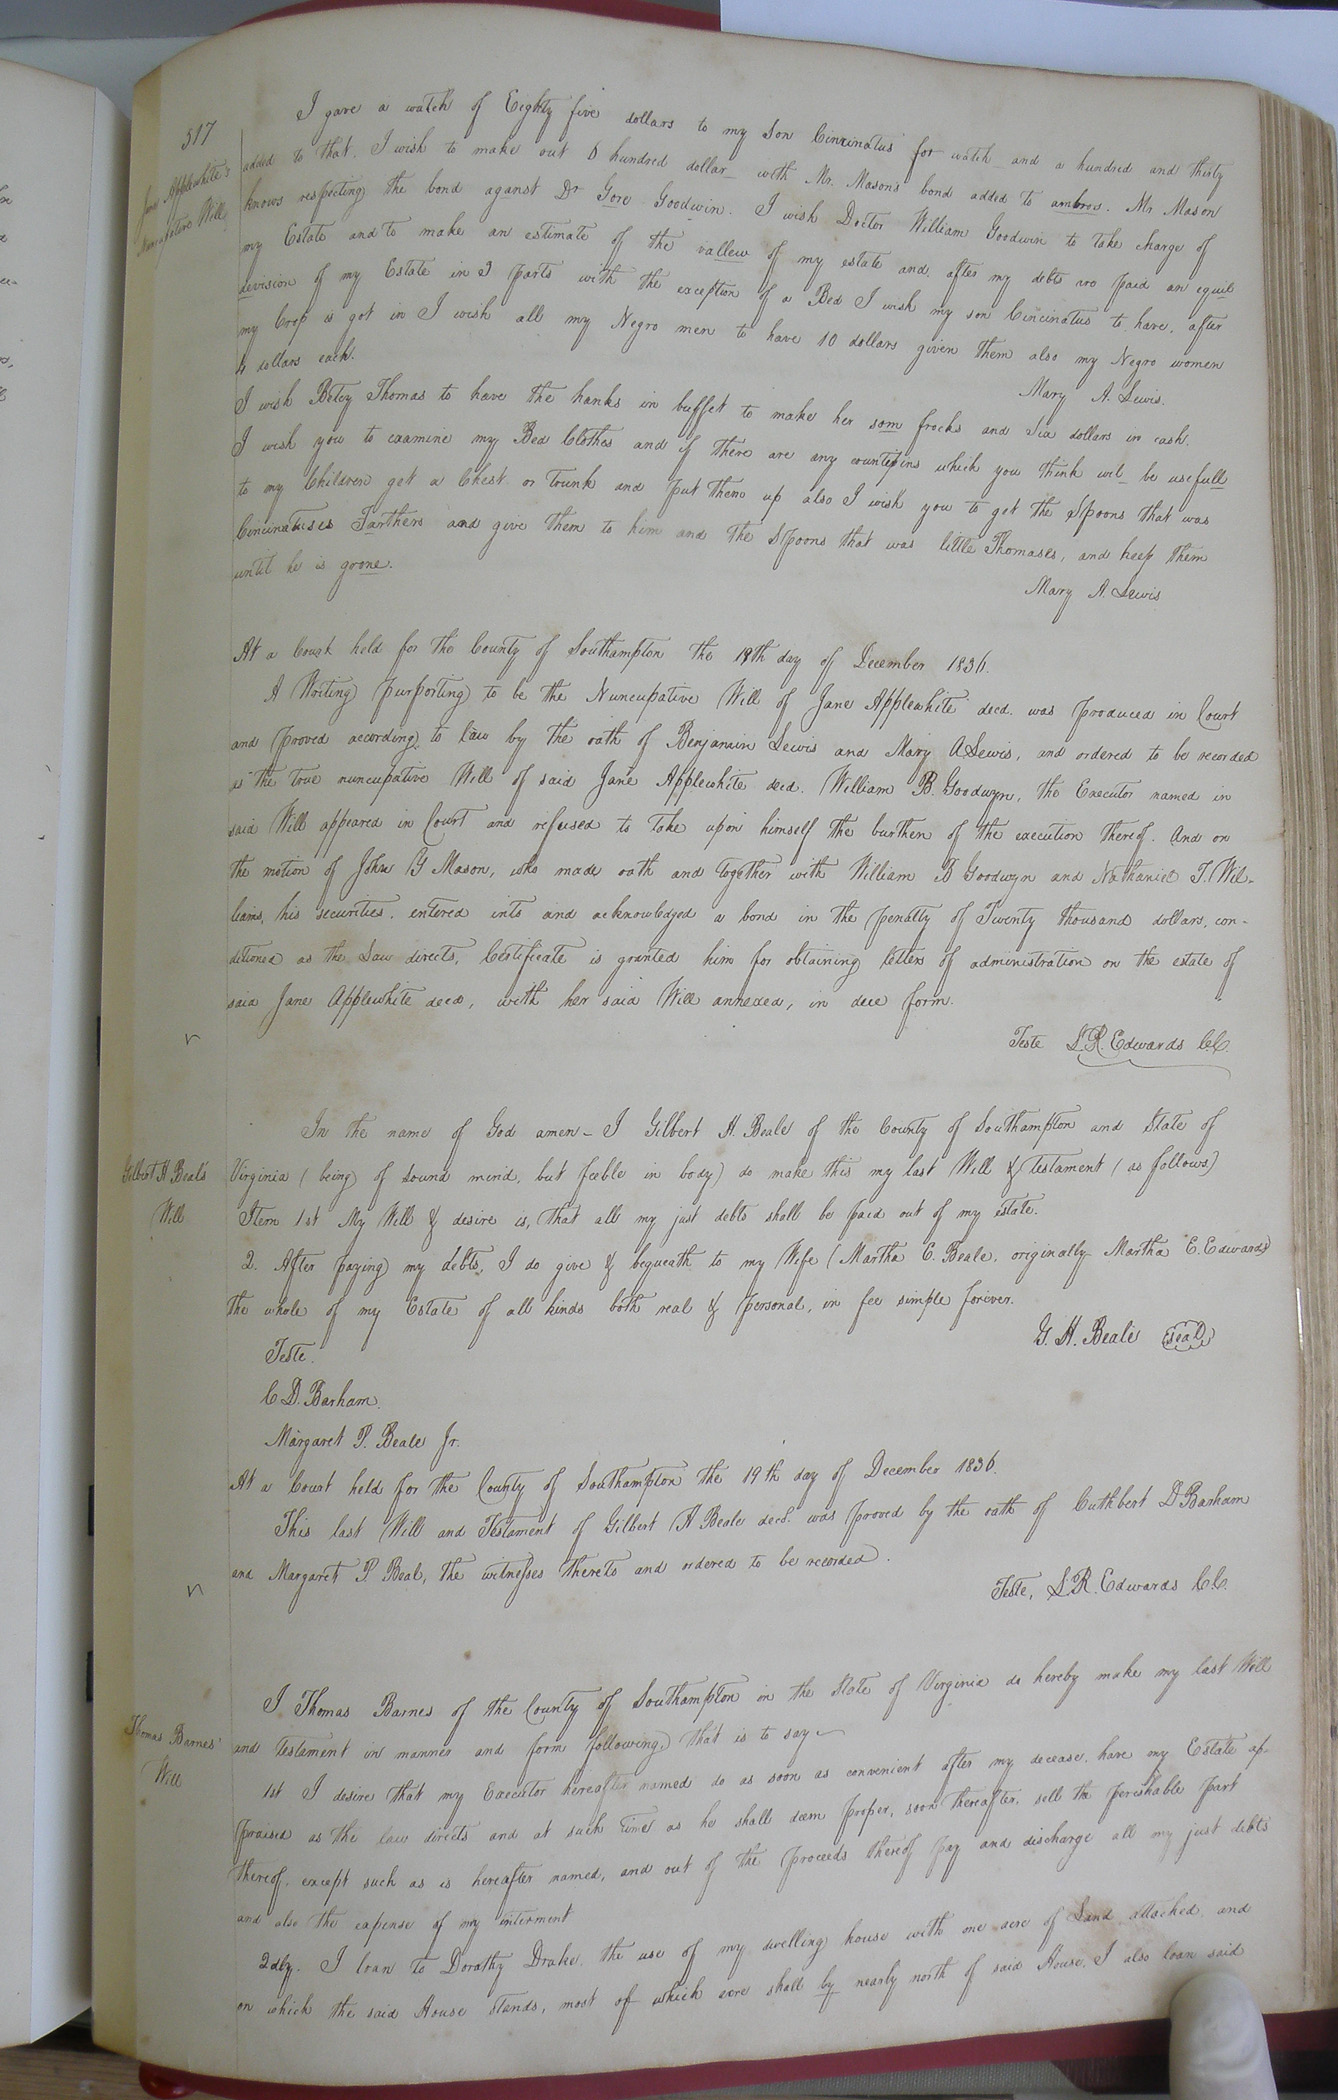 517
Jane Applewhite's
Nuncupative Will
I gave a watch of Eighty five dollars to my Son Cincinatus for watch and a hundred and thirty
added to that. I wish to make out 6 hundred dollar with Mr. Masons bond added to ambros. Mr. Mason
knows respecting the bond aganst Dr Gore Goodwin. I wish Doctor William Goodwin to take charge of
my Estate and to make an estimate of the vallew of my estate and after my debts are paid an equil
devision of my Estate in 3 parts with the exception of a Bed I wish my son Cincinatus to have. after
my Crop is got in I wish all my Negro men to have 10 dollars given them also my Negro women
4 dollars each.
Mary A. Lewis.
I wish Betcy Thomas to have the hanks in buffet to make her som frocks and Six dollars in cash.
I wish you to examine my Bed Clothes and if there are any countepins which you think wil be usefull
to my Children get a Chest or Trunk and put them up also I wish you to get the Spoons that was
Cincinatuses Farthers and give them to him and the Spoons that was little Thomases, and keep them
until he is grone.
Mary A. Lewis
At a Court held for the County of Southampton the 19th day of December 1836.
A Writing purporting to be the Nuncupative Will of Jane Applewhite decd. was produced in Court
and proved according to law by the oath of Benjamin Lewis and Mary A Lewis, and ordered to be recorded
as the true nuncupative Will of said Jane Applewhite decd. William B. Goodwyn, the Executor named in
said Will appeared in Court and refused to take upon himself the burthen of the execution thereof. And on
the motion of John G Mason, who made oath and together with William B Goodwyn and Nathaniel T. Wil-
liams, his securities, entered into and acknowledged a bond in the penalty of Twenty thousand dollars, con-
ditioned as the Law directs, Certificate is granted him for obtaining letters of administration on the estate of
said Jane Applewhite decd, with her said Will annexed, in due form.
Teste L.R. Edwards C.C.
Gilbert H Beal's
Will
In the name of God amen - I Gilbert H. Beale of the County of Southampton and State of
Virginia (being of sound mind, but feeble in body) do make this my last Will & Testament (as follows)
Item 1st My Will & desire is, that all my just debts shall be paid out of my estate.
2. After paying my debts, I do give & bequeath to my Wife (Martha E. Beale, originally Martha E. Edwards)
the whole of my Estate of all kinds both real & personal, in fee simple forever.
G. H. Beale seal
Teste.
C D. Barham.
Margaret P. Beale Jr.
At a Court held for the County of Southampton the 19th day of December 1836.
This last Will and Testament of Gilbert H Beale decd. was proved by the oath of Cuthbert D Barham
and Margaret P Beal, the witnesses thereto and ordered to be recorded.
Teste, L.R. Edwards C.C.
Thomas Barnes'
Will
I Thomas Barnes of the County of Southampton in the State of Virginia do hereby make my last Will
and Testament in manner and form following, that is to say
1st I desire that my Executor hereafter named do as soon as convenient after my decease, have my Estate ap-
praised as the law directs and at such time as he shall deem proper, soon thereafter, sell the perishable part
thereof, except such as is hereafter named, and out of the proceeds thereof pay and discharge all my just debts
and also the expense of my interment
2dly. I loan to Dorathy Drake, the use of my dwelling house with one acre of Land attached and
on which the said House stands, most of which acre shall by nearly north of said House, I also loan said